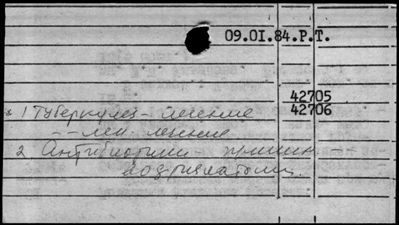 09.01.84.Р.Т.
42705
42706
1 Туберкулез - лечение
- - лек. лечение
2 Антибиотики - примен. - -